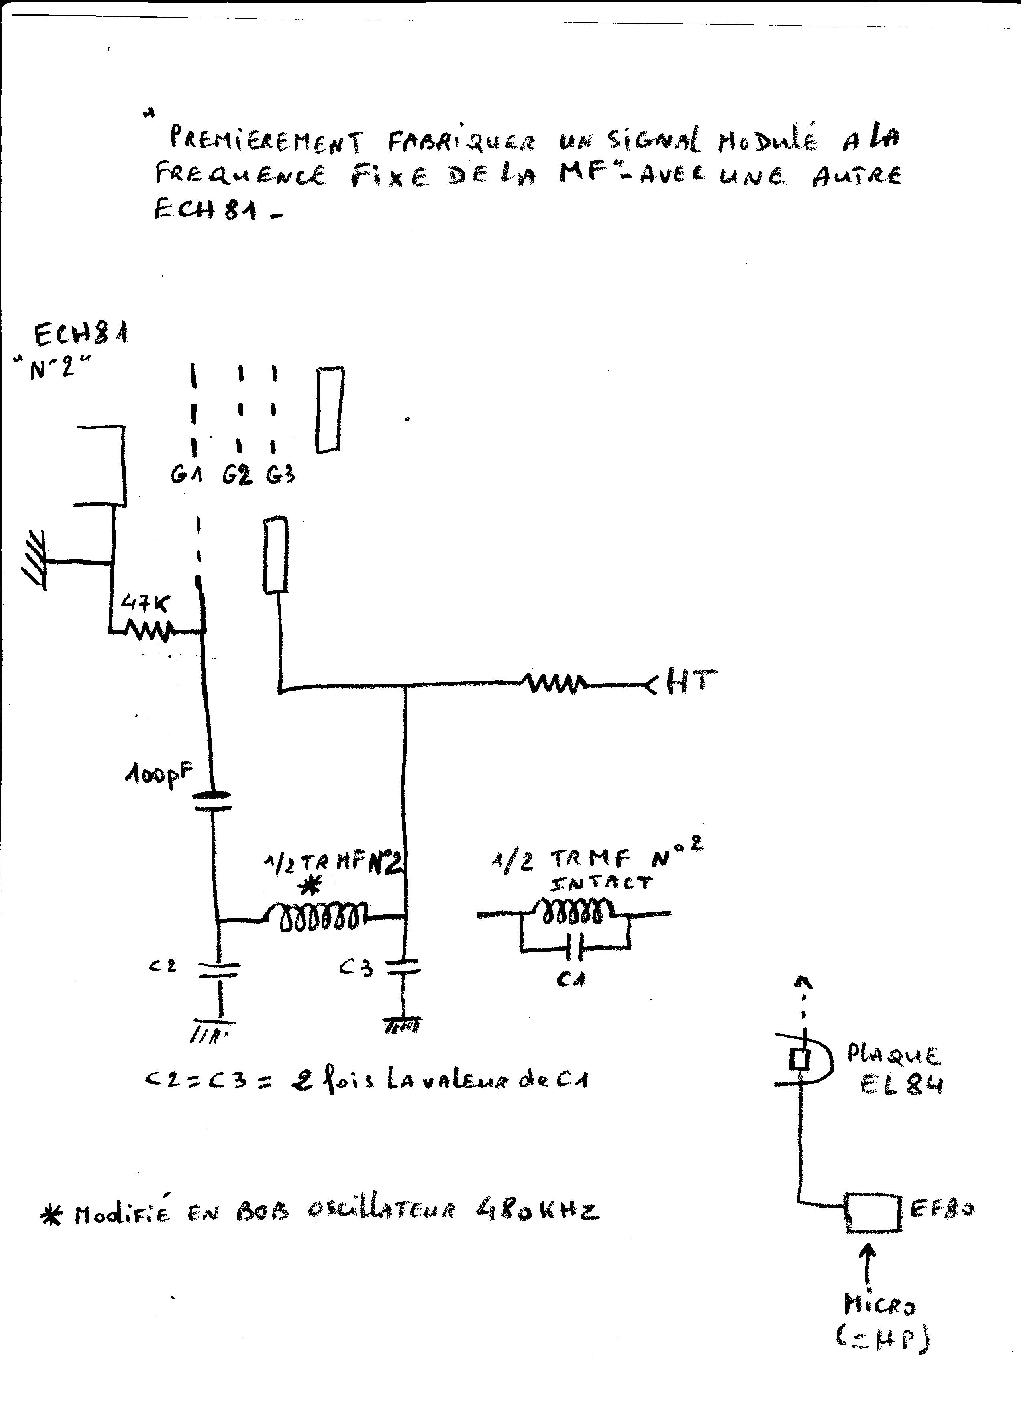 "PREMIEREMENT FABRIQUER UN SIGNAL MODULÉ A LA
FREQUENCE FIXE DE LA MF" - AVEC UNE AUTRE
ECH 81 -
ECH81
"N°2"
G1 G2 G3
47K
HT
100pF
1/2 TR MF N°2
*
1/2 TRMF N°2
INTACT
C2
C3
C1
PLAQUE
EL84
C2 = C3 = 2 fois LA VALEUR de C1
* Modifié EN BOB OSCILLATEUR 480KHZ
EF80
MICRO
(=HP)